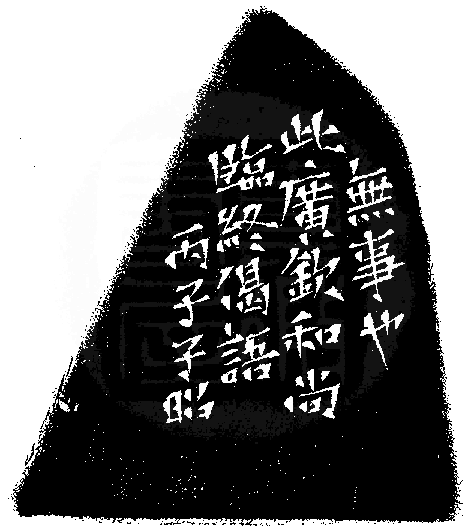 無事也
此廣欽和尚
臨終偈語
丙子子昭